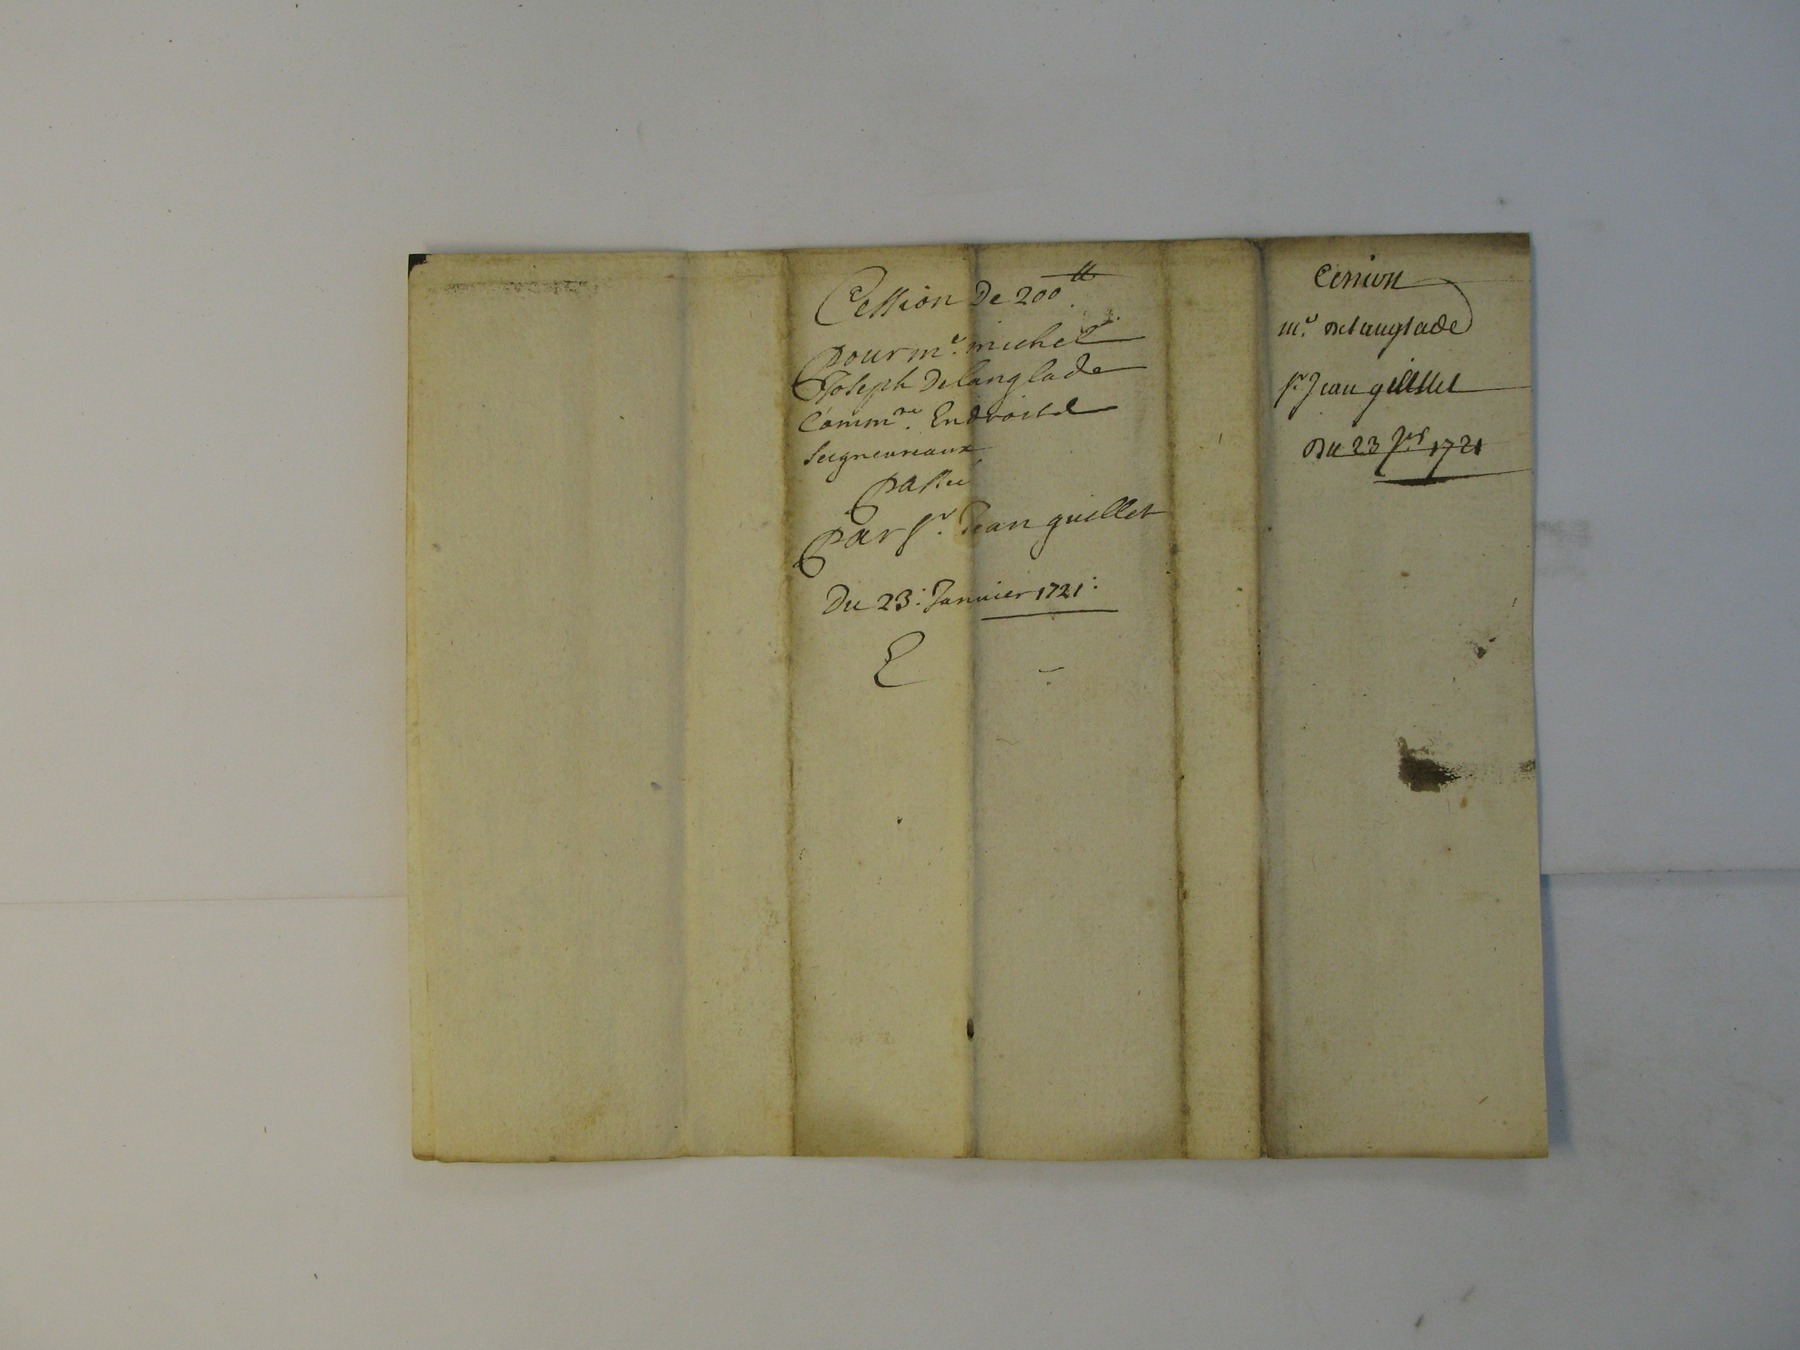 Cession De 200ᵗᵗ
pour mᵉ. michel
Joseph Delanglade
Commʳᵉ. En droits
Seigneuriaux
passé
par sʳ. Jean guillet
Du 23: Janvier 1721:
Cession
mᵉ. Delanglade
sʳ Jean guillet
Du 23 Jᵉʳ 1721